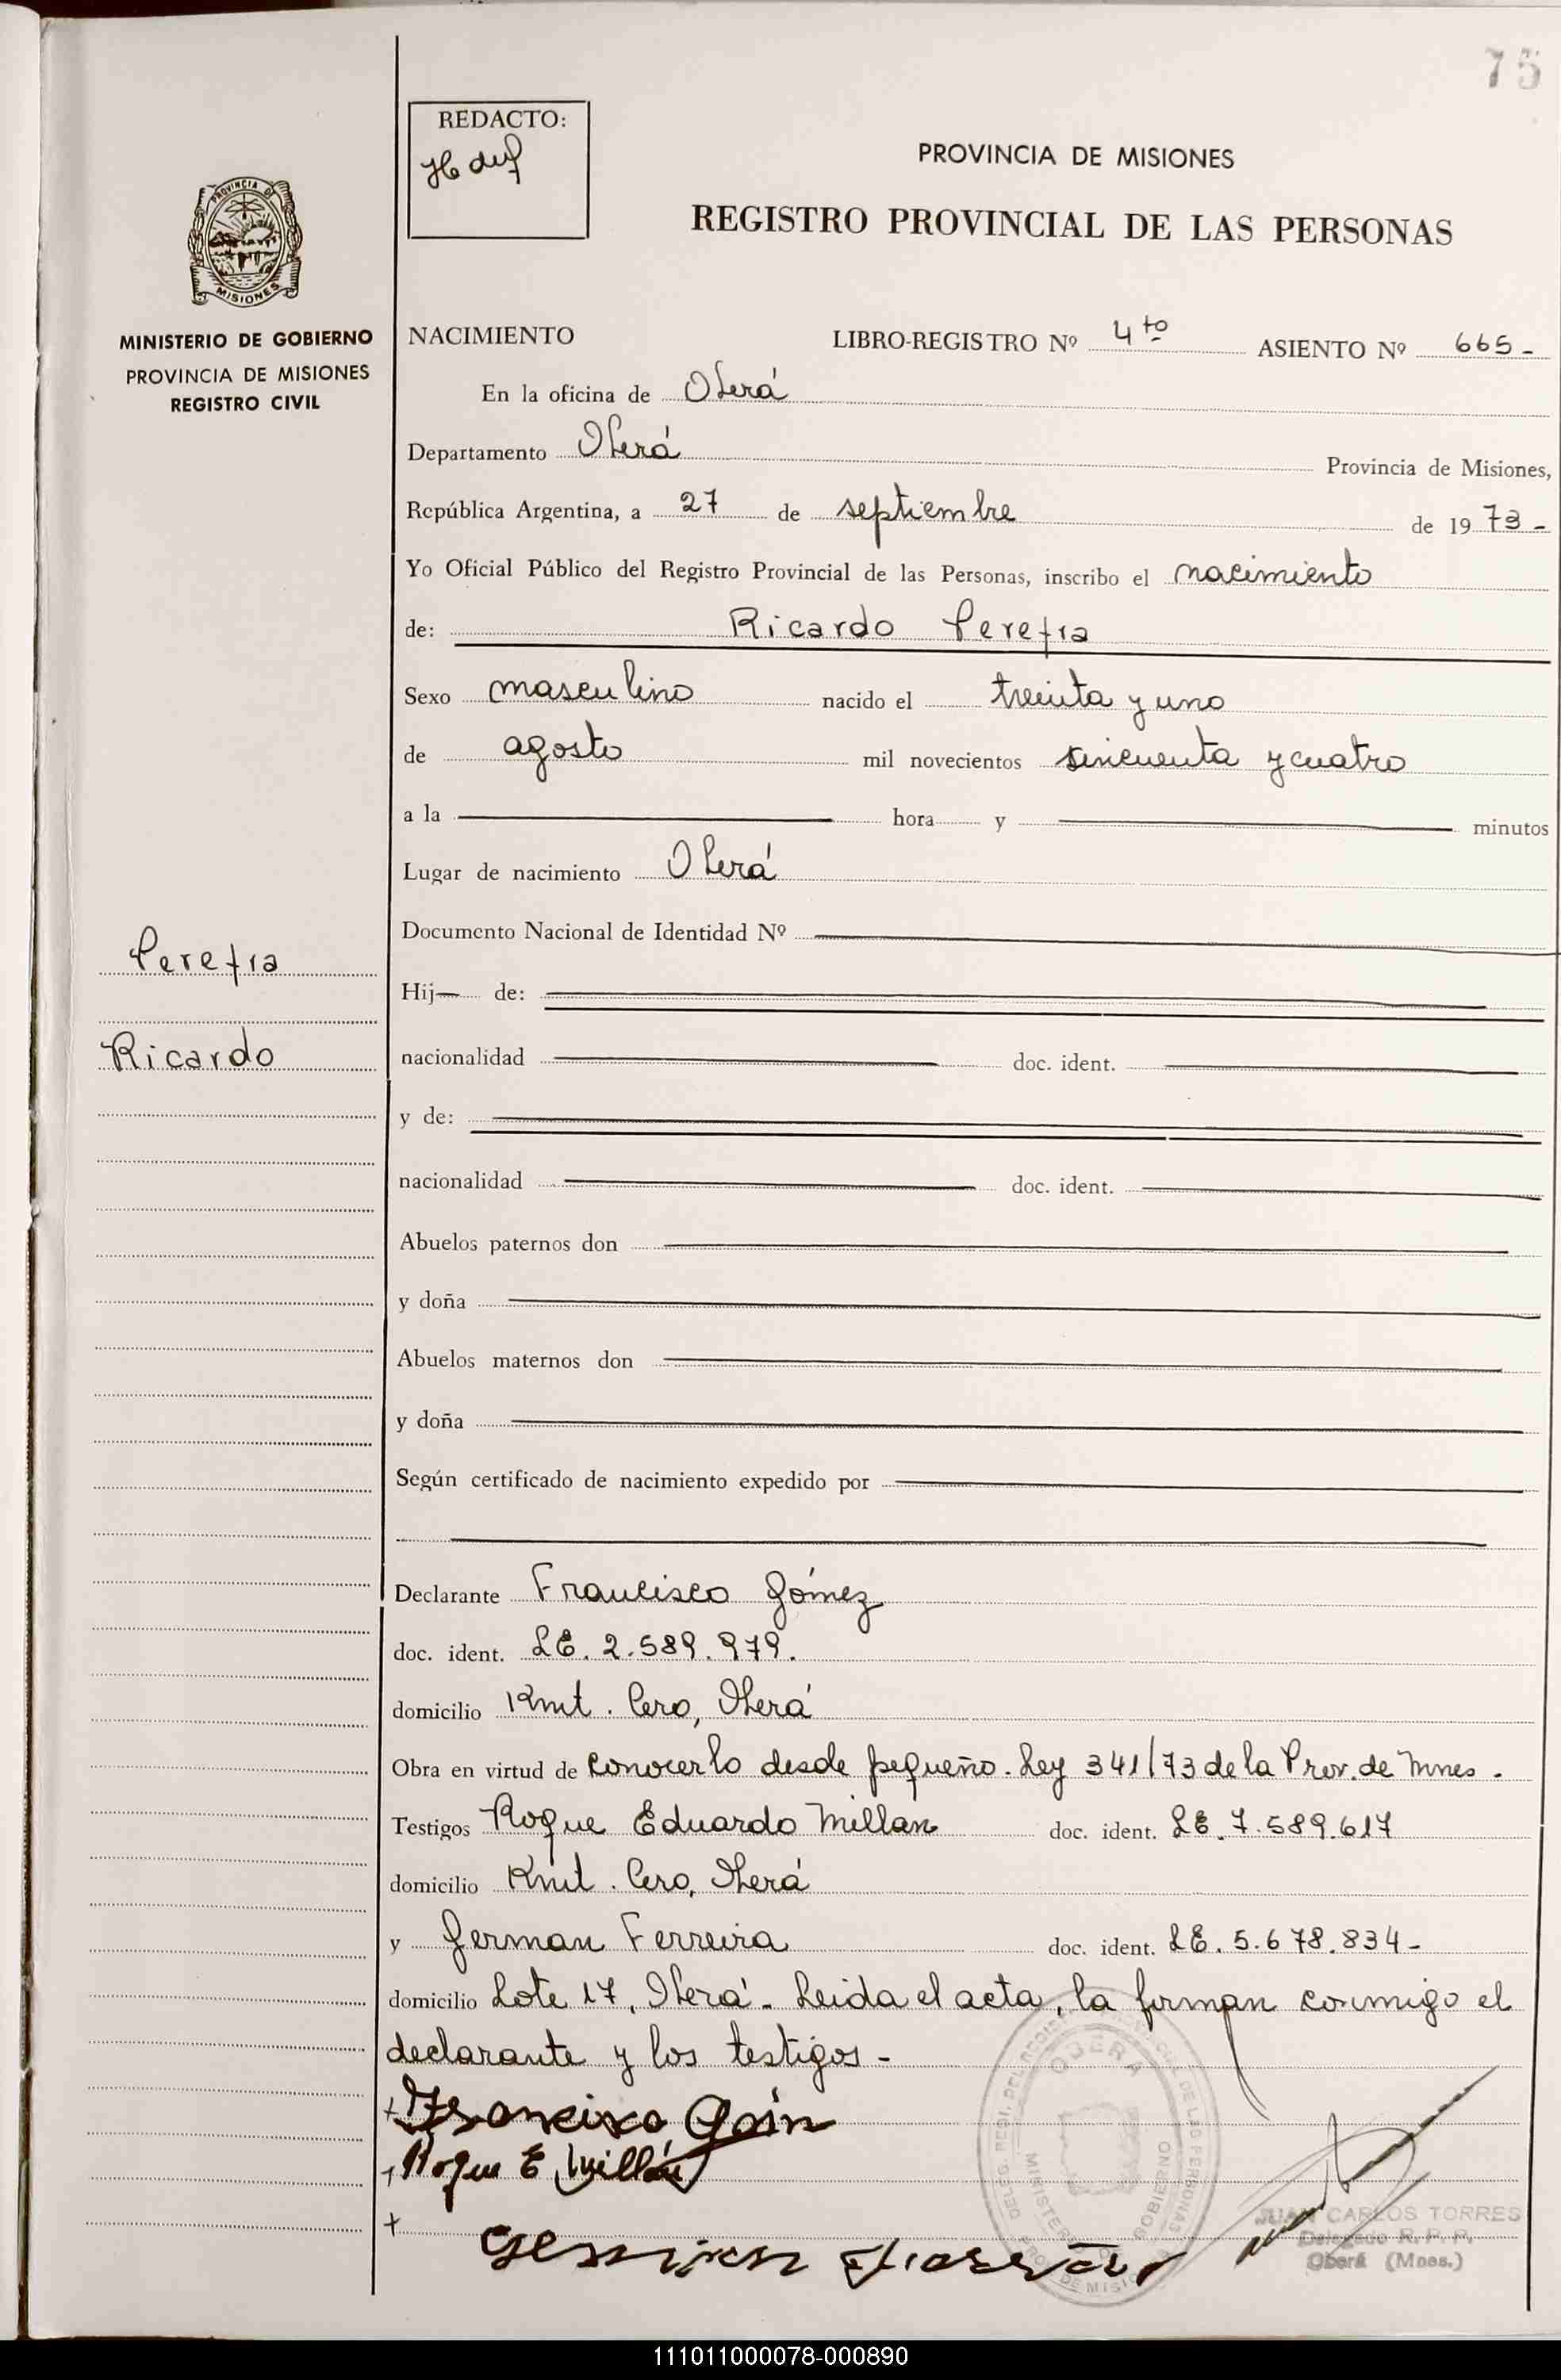 75
REDACTO:
PROVINCIA DE MISIONES
REGISTRO PROVINCIAL DE LAS PERSONAS
PROVINCIA DE
MISIONES
MINISTERIO DE GOBIERNO
PROVINCIA DE MISIONES
REGISTRO CIVIL
NACIMIENTO LIBRO-REGISTRO Nº 4to ASIENTO Nº 665-
En la oficina de Oberá
Departamento Oberá Provincia de Misiones,
República Argentina, a 27 de septiembre de 1973-
Yo Oficial Público del Registro Provincial de las Personas, inscribo el nacimiento
de: Ricardo Pereyra
Sexo masculino nacido el treinta y uno
de agosto mil novecientos sincuenta y cuatro
a la hora y minutos
Lugar de nacimiento Oberá
Documento Nacional de Identidad Nº
Pereyra
Hij de:
Ricardo
nacionalidad doc. ident.
y de:
nacionalidad doc. ident.
Abuelos paternos don
y doña
Abuelos maternos don
y doña
Según certificado de nacimiento expedido por
Declarante Francisco Gómez
doc. ident. LE. 2.589.979.
domicilio Kmt. Cero, Oberá
Obra en virtud de conocerlo desde pequeño. Ley 341/73 de la Prov. de Mnes.
Testigos Roque Eduardo Millan doc. ident. LE. 7.589.617
domicilio Kmt. Cero, Oberá
y German Ferreira doc. ident. LE. 5.678.834-
domicilio Lote 17, Oberá. Leida el acta, la firman conmigo el
declarante y los testigos-
OBERA
MINISTERIO DE GOBIERNO
Roque E. Millán
JUAN CARLOS TORRES
Delegado R. P. P.
Oberá (Mnes.)
111011000078-000890